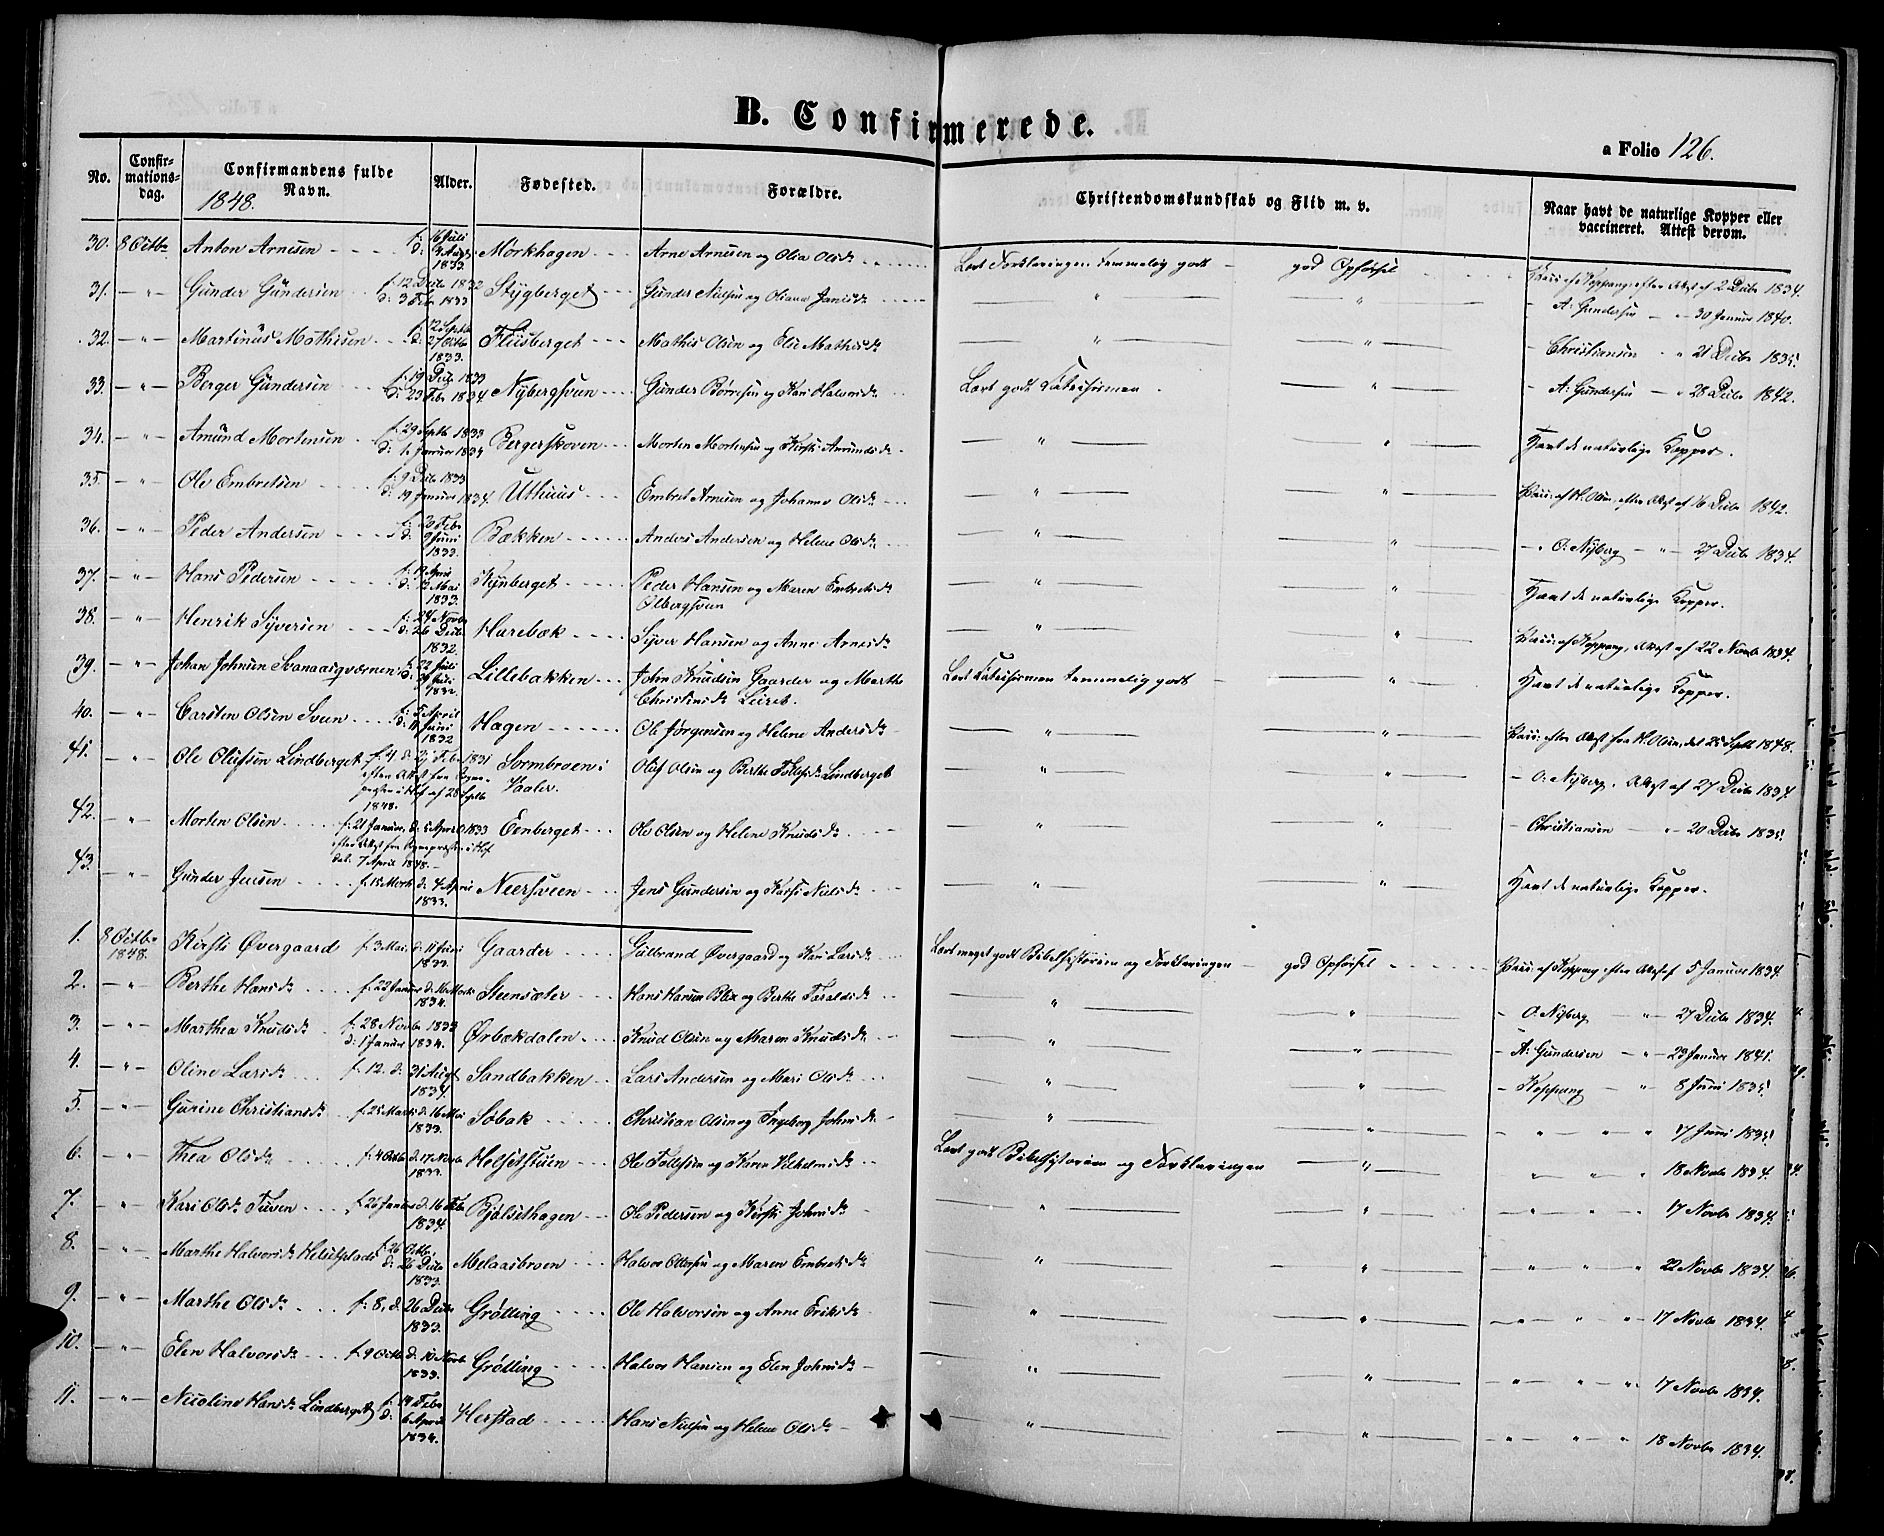 B. Confirmerede.
a Folio 126.
No. Confirmationsdag. Confirmandens fulde Navn. Alder. Fødested. Forældre. Christendomskundskab og Flid m. v. Naar havt de naturlige Kopper eller vaccineret. Attest derom.
1848.
30. 8 Octbr Anton Arnesen f: 16 Juli d: Aug 1833 Mørkhagen Arne Arnesen og Olia Olsdr Lært Forklaringen temmelig godt god Opførsel Vacc: af Koppang, efter Attest af 2 Decbr 1834.
31. " Gunder Gundersen f: 12 Decbr 1832 d: 3 Feb 1833 Stygberget Gunder Nielsen og Oliana Jensdr " " A: Gundersen 30 Januar 1840.
32. " Martinus Mathisen f: 12 Septbr d: 27 Octbr 1833. Fliisberget Mathis Olsen og Else Mathisdr " " Christiansen " 21 Decbr 1835.
33. " Berger Gundersen f: 19 Decbr 1833 d: 23 Febr 1834. Nybergsveen Gunder Børresen og Kari Halvorsdr Lært godt Katekismen. " A: Gundersen " 28 Decbr 1842.
34. " Amund Mortensen f: 29 Septbr 1833 d: 1 Januar 1834 Bergerskoven Morten Mortensen og Kirsti Amundsdr " " Havt de naturlige Kopper.
35. " Ole Embretsen f: 9 Decbr 1833 d: 19 Januar 1834. Uthuus Embret Arnesen og Johanne Olsdr " " Vacc: af H. Olsen, efter Attest af 16 Decbr 1842.
36. " Peder Andersen f: 20 Febr d: 9 Juni 1833. Bækken Anders Andersen og Helene Olsdr " " " O: Nyberg " 27 Decbr 1834.
37. " Hans Pedersen f: 19 April d: 12 Mai 1833. Kynberget Peder Hansen og Maren Embretsdr Olbergsveen " " Havt de naturlige Kopper.
38. " Henrik Syversen f: 24 Novbr d: 26 Decbr 1832. Harebæk Syver Hansen og Anne Arnesdr " " Vacc: af Koppang, Attest af 22 Novbr 1834.
39. " Johan Johnsen Svanaasqværnen f: 22 Juli d: 29 Juli 1832. Lillebakken John Knudsen Gaarder og Marthe Christensdr Leiret. Lært Katekismen temmelig godt " Havt de naturlige Kopper.
40. " Carsten Olsen Sveen f: 5 April d: 11 Juni 1832 Hagen Ole Jørgensen og Helene Andersdr " " Vacc: efter Attest fra H. Olsen, det 25 Septbr 1848.
41. " Ole Olufsen Lindberget f. 4 d. 25 Feb. 1831 efter Attest fra Sognepresten i Hof af 28 Septbr 1848. Sormbroen i Vaaler. Oluf Olsen og Berthe Tollefsdr Lindberget " " O: Nyberg, Attest af 27 Decbr 1834.
42. " Morten Olsen f: 21 Januar, d: 5 April 1833 efter Attest fra Sognepræsten i Hof dat: 7 April 1848. Eenberget Ole Olsen og Helene Knudsdr " " Christiansen " 20 Decbr 1835.
43. " Gunder Jensen f. 15 Marts d: 4 April 1833. Neersveen Jens Gundersen og Kirsti Nielsdr " " Havt de naturlige Kopper.
1. 8 Octbr 1848. Kirsti Øvergaard f: 3 Mai, d: 11 Juni 1833. Gaarder Gulbrand Øvergaard og Kari Larsdr Lært meget godt Bibelhistorien og Forklaringen god Opførsel Vacc: af Koppang efter Attest af 5 Januar 1834.
2. " Berthe Hansdr f: 22 Januar d: 16 Marts 1834. Steensæter Hans Hansen Blix og Berthe Taraldsdr " " O. Nyberg " 27 Decbr 1834.
3. " Marthea Knudsdr f: 28 Novbr 1833 d: 1 Januar 1834. Ørbækdalen Knud Olsen og Maren Knudsdr " " A: Gundersen " 23 Januar 1841.
4. " Oline Larsdr f. 12. d: 31 Augt 1834. Sandbakken Lars Andersen og Mari Olsdr " " Koppang " 8 Juni 1835.
5. " Gurine Christiansdr f: 25 Marts d: 16 Mai 1833. Søbak Christian Olsen og Ingeborg Johnsdr " " " " " 17 Juni 1835.
6. " Thea Olsdr f: 4 Octbr d: 17 Novbr 1833. Helsetstuen Ole Tollefsen og Karen Vilhelmsdr Lært godt Bibelhistorien og Forklaringen " " " " 18 Novbr 1834.
7. " Kari Olsdr Tuven f. 26 Januar d. 16 Febr 1834. Bjølsethagen Ole Pedersen og Kirsti Johnsdr " " " " " 17 Novbr 1834.
8. " Marthe Halvorsdr Helsetplads f: 26 Octbr. d: 26 Decbr 1833. Melaasbroen Halvor Ottersen og Maren Embretsdr " " " " " 22 Novbr 1834.
9. " Marthe Olsdr f: 8, d. 26 Decbr 1833. Grøtting Ole Halvorsen og Anne Eriksdr " " " " " 17 Novbr 1834.
10. " Elen Halvorsdr f. 9 Octbr d: 10 Novbr 1833. Grøtting Halvor Hansen og Elen Johnsdr " " " " " 17 Novbr 1834.
11. " Nicoline Hansdr Lindberget f: 14 Febr d: 6 April 1834. Herstad Hans Nielsen og Helene Olsdr " " " " " 18 Novbr 1834.